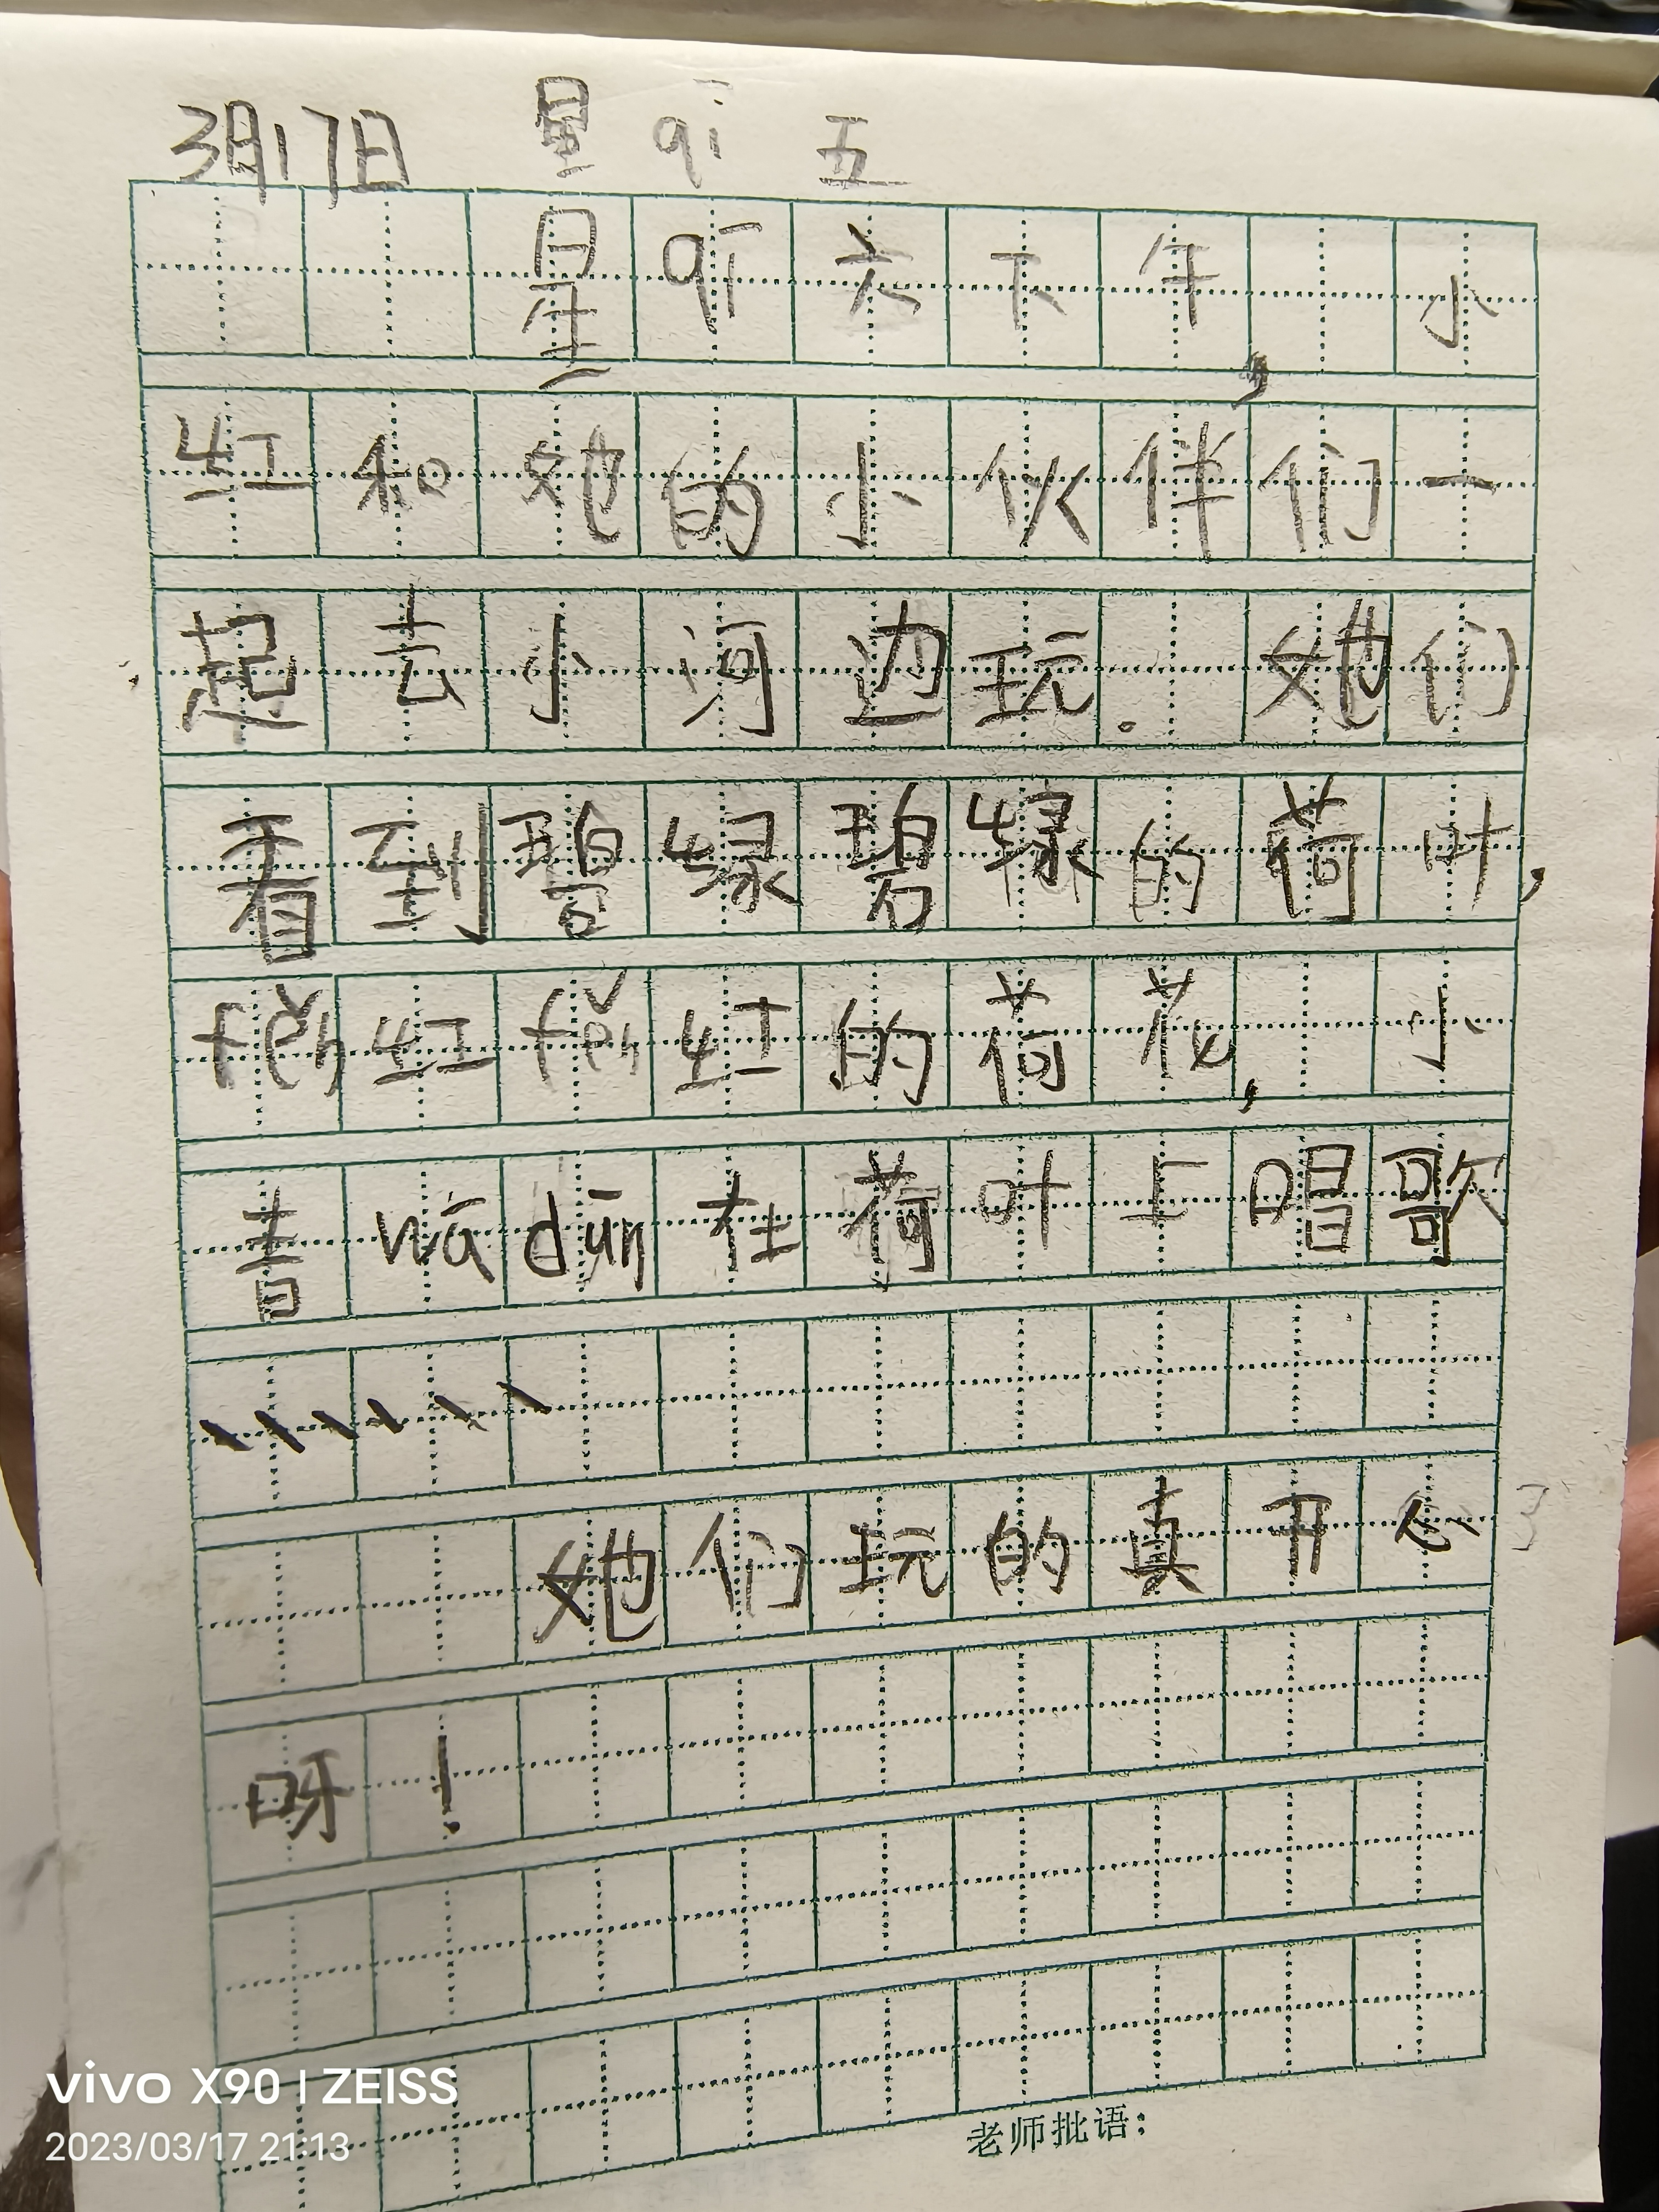 3月17日 星 qī 五
星 qī 六下午，小
红和她的小伙伴们一
起去小河边玩。她们
看到碧绿碧绿的荷叶，
fěn 红 fěn 红的荷花，小
青 wā dūn 在荷叶上唱歌
、、、、、、
她们玩的真开心
呀！
老师批语：
vivo X90 | ZEISS
2023/03/17 21:13